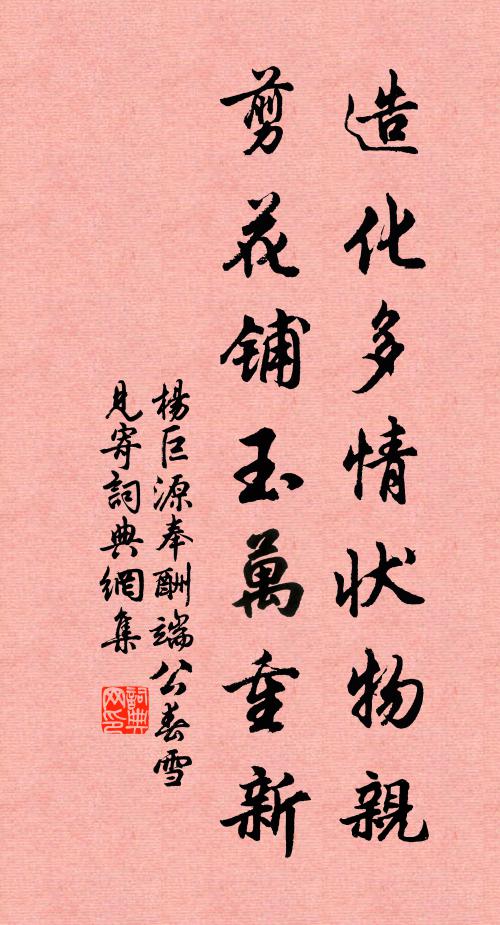 造化多情狀物親
剪花鋪玉萬重新
楊巨源奉酬端公春雪
見寄詞典網集
詞典
网印